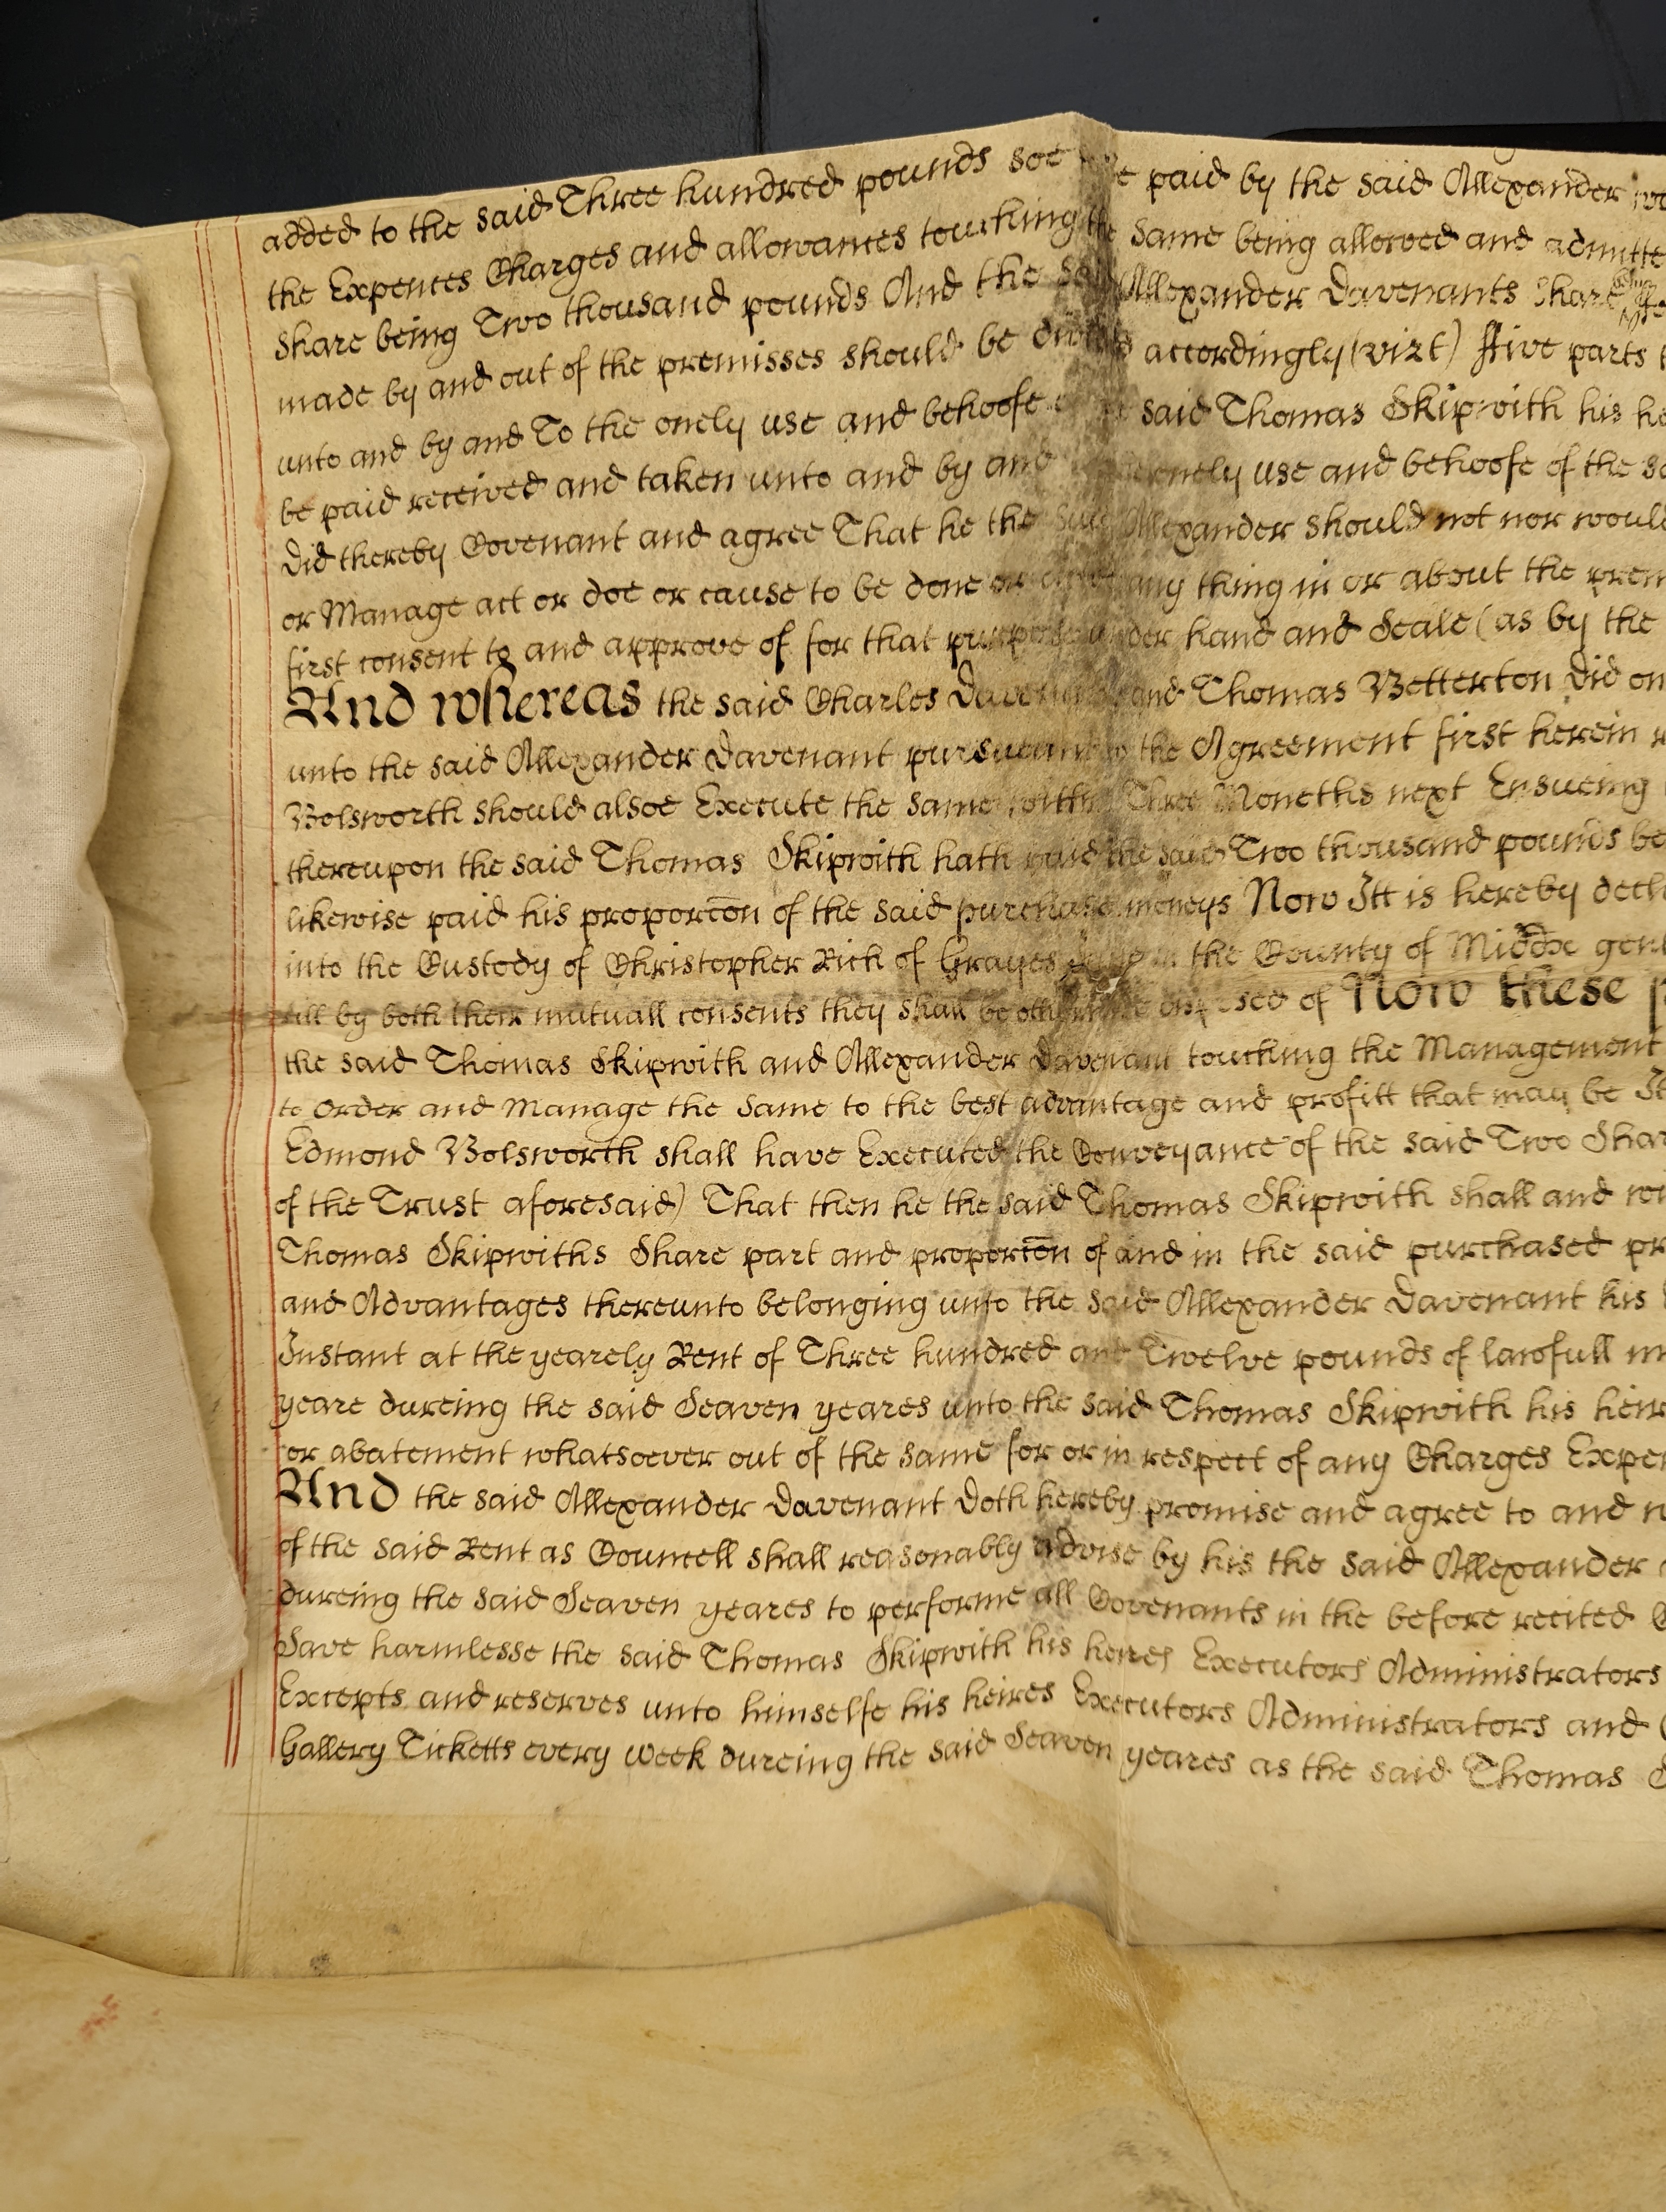 added to the said Three hundred pounds soe paid by the said Allexander
the Expences Charges and allowances touching the Same being allowed and admitte
Share being Two thousand pounds And the said Allexander Davenants Share
made by and out of the premisses should be accordingly (vizt) ffive parts
unto and by and To the onely use and behoofe said Thomas Skipwith his he
be paid received and taken unto and by and onely use and behoofe of the sa
Did thereby Covenant and agree That he the said Allexander should not nor would
or Manage act or doe or cause to be done or any thing in or about the prem
first consent to and approve of for that purpose under hand and Seale (as by the
And whereas the said Charles Davenant and Thomas Betterton Did on
unto the said Allexander Davenant pursueant to the Agreement first herein
Bolsworth should alsoe Execute the same within Three Moneths next Ensueing
thereupon the said Thomas Skipwith hath paid the said Two thousand pounds be
likewise paid his proporc̄on of the said purchase moneys Now Itt is hereby decl
into the Custody of Christopher Rich of Grayes in the County of Midd̄x gen
till by both their mutuall consents they shall be of Now these p
the said Thomas Skipwith and Allexander Davenant touching the Management
to Order and Manage the Same to the best advantage and profitt that may be It
Edmond Bolsworth shall have Executed the Conveyance of the said Two Shar
of the Trust aforesaid) That then he the said Thomas Skipwith shall and wi
Thomas Skipwiths Share part and proporc̄on of and in the said purchased pr
and Advantages thereunto belonging unto the said Allexander Davenant his
Instant at the yearely Rent of Three hundred and Twelve pounds of lawfull m
yeare dureing the said Seaven yeares unto the said Thomas Skipwith his heir
or abatement whatsoever out of the same for or in respect of any Charges Expen
And the said Allexander Davenant Doth hereby promise and agree to and
of the said Rent as Councell shall reasonably advise by his the said Allexander
dureing the said Seaven yeares to performe all Covenants in the before recited
Save harmlesse the said Thomas Skipwith his heires Executors Administrators
Excepts and reserves unto himselfe his heires Executors Administrators and
Gallery Ticketts every week dureing the said Seaven yeares as the said Thomas